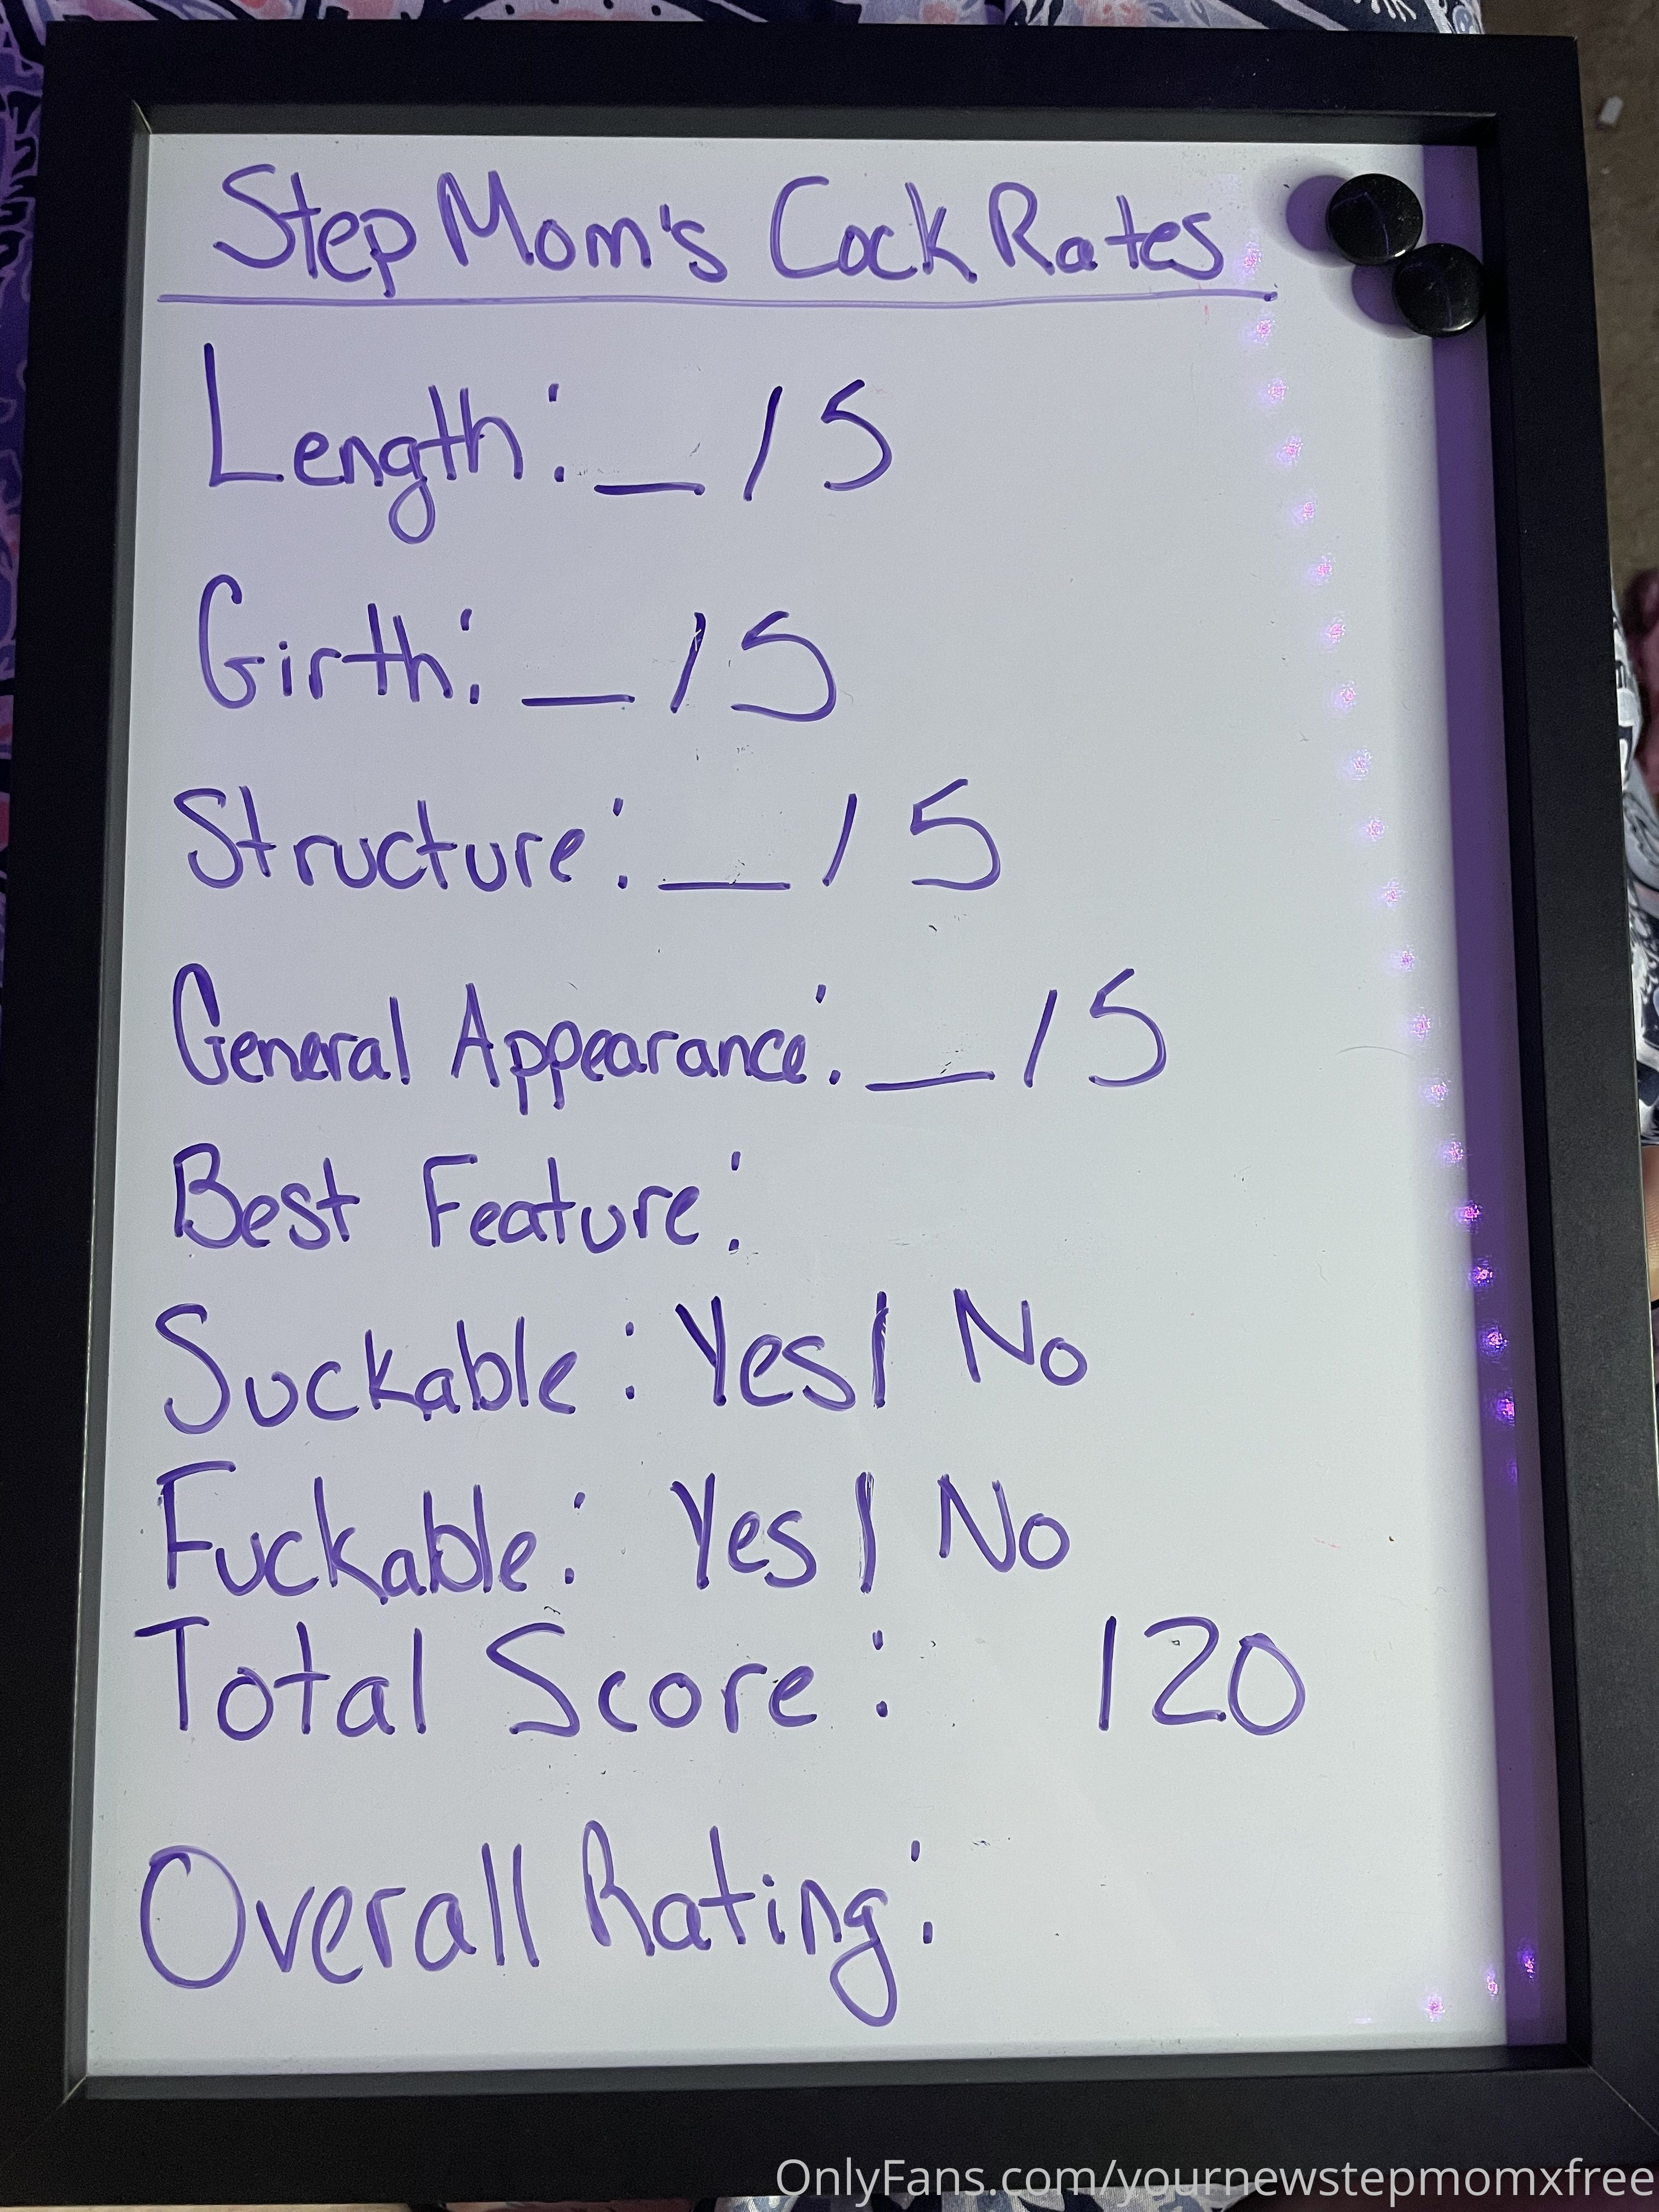 Step Mom's Cock Rates
Length: _ / 5
Girth: _ / 5
Structure: _ / 5
General Appearance: _ / 5
Best Feature:
Suckable: Yes / No
Fuckable: Yes / No
Total Score: /20
Overall Rating:
OnlyFans.com/yournewstepmomxfree